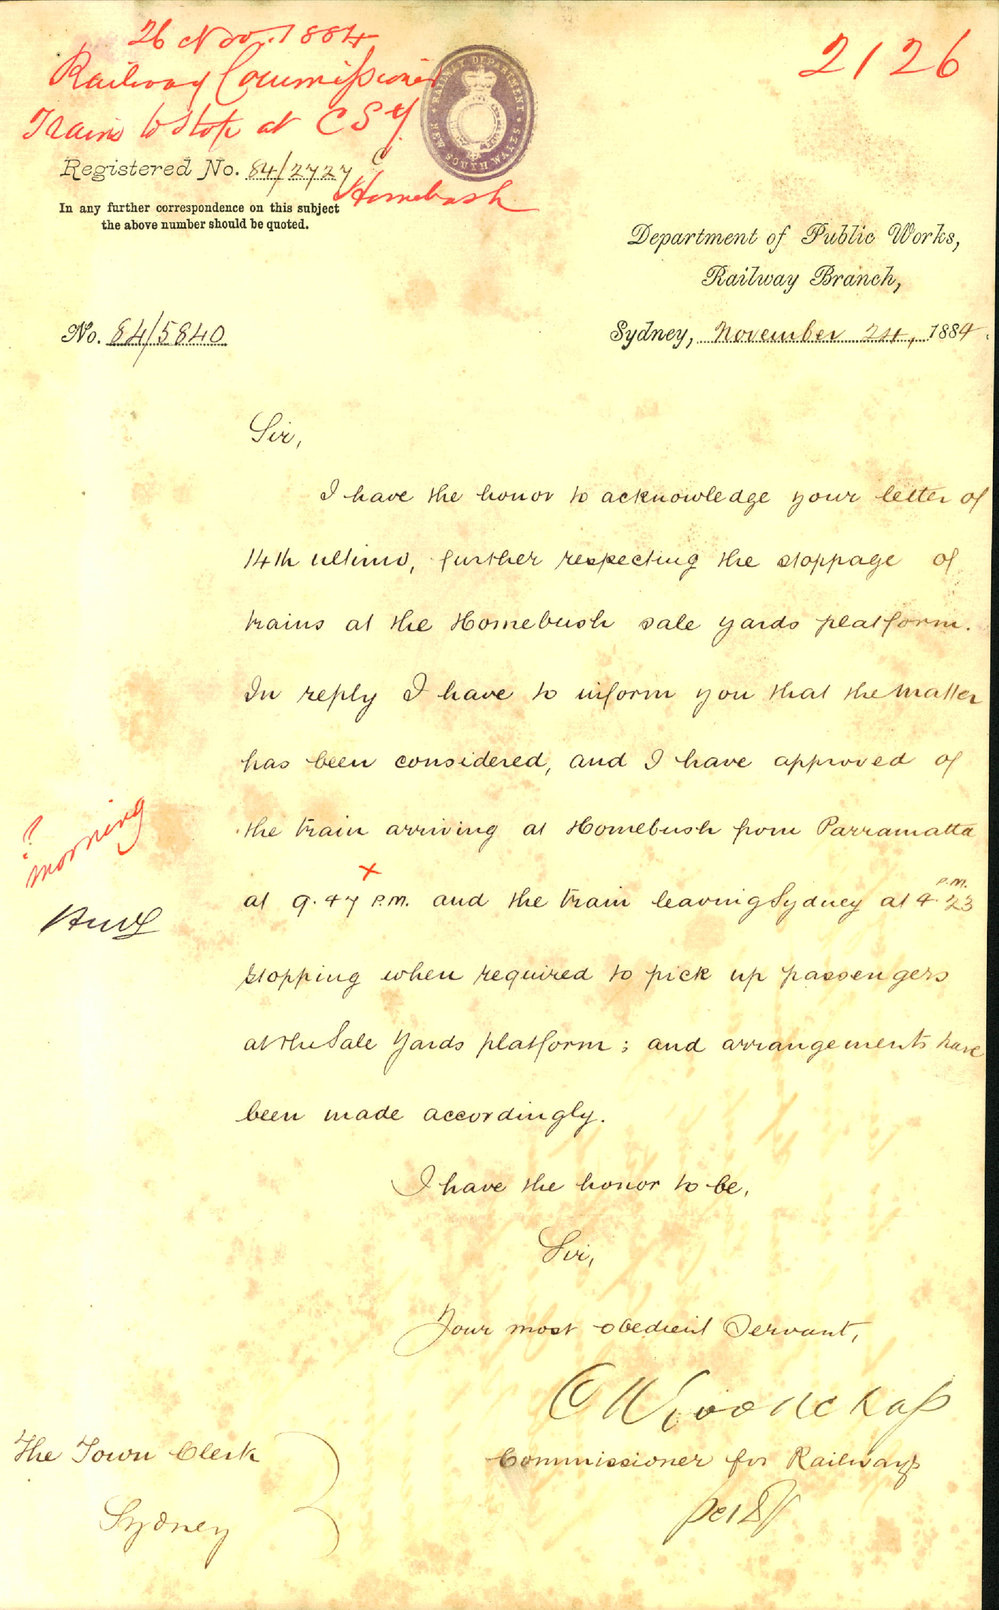 26 Nov. 1884
Railway Commissioner
Trains to stop at CSY
Homebush
2126
RAILWAY DEPARTMENT
NEW SOUTH WALES
Registered No. 84/2727
In any further correspondence on this subject
the above number should be quoted.
Department of Public Works,
Railway Branch,
No. 84/5840
Sydney, November 24, 1884.
Sir,
I have the honor to acknowledge your letter of
14th ultimo, further respecting the stoppage of
trains at the Homebush sale yards platform.
In reply I have to inform you that the matter
has been considered, and I have approved of
the train arriving at Homebush from Parramatta
? morning
at 9.47 P.M. and the train leaving Sydney at 4.23 P.M.
x
stopping when required to pick up passengers
at the Sale Yards platform; and arrangements have
been made accordingly.
I have the honor to be,
Sir,
Your most obedient Servant,
Commissioner for Railways
per
The Town Clerk
Sydney